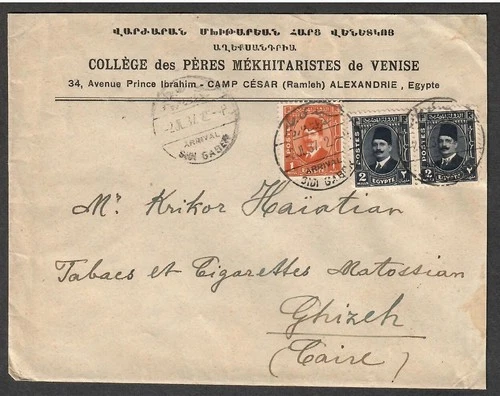 ՎԱՐԺԱՐԱՆ ՄԽԻԹԱՐԵԱՆ ՀԱՐՑ ՎԵՆԵՏԿՈՅ
ԱՂԵՔՍԱՆԴՐԻԱ
COLLÈGE des PÈRES MÉKHITARISTES DE VENISE
34, Avenue Prince Ibrahim - CAMP CÉSAR (Ramleh) ALEXANDRIE, Egypte
ARRIVAL
SIDI GABER
POSTES
1
ARRIVAL
SIDI GABER
POSTES
2 EGYPTE ٢
POSTES
2 EGYPTE ٢
Mr Krikor Haïatian
Tabacs et Cigarettes Matossian
Ghizeh
(Caire)